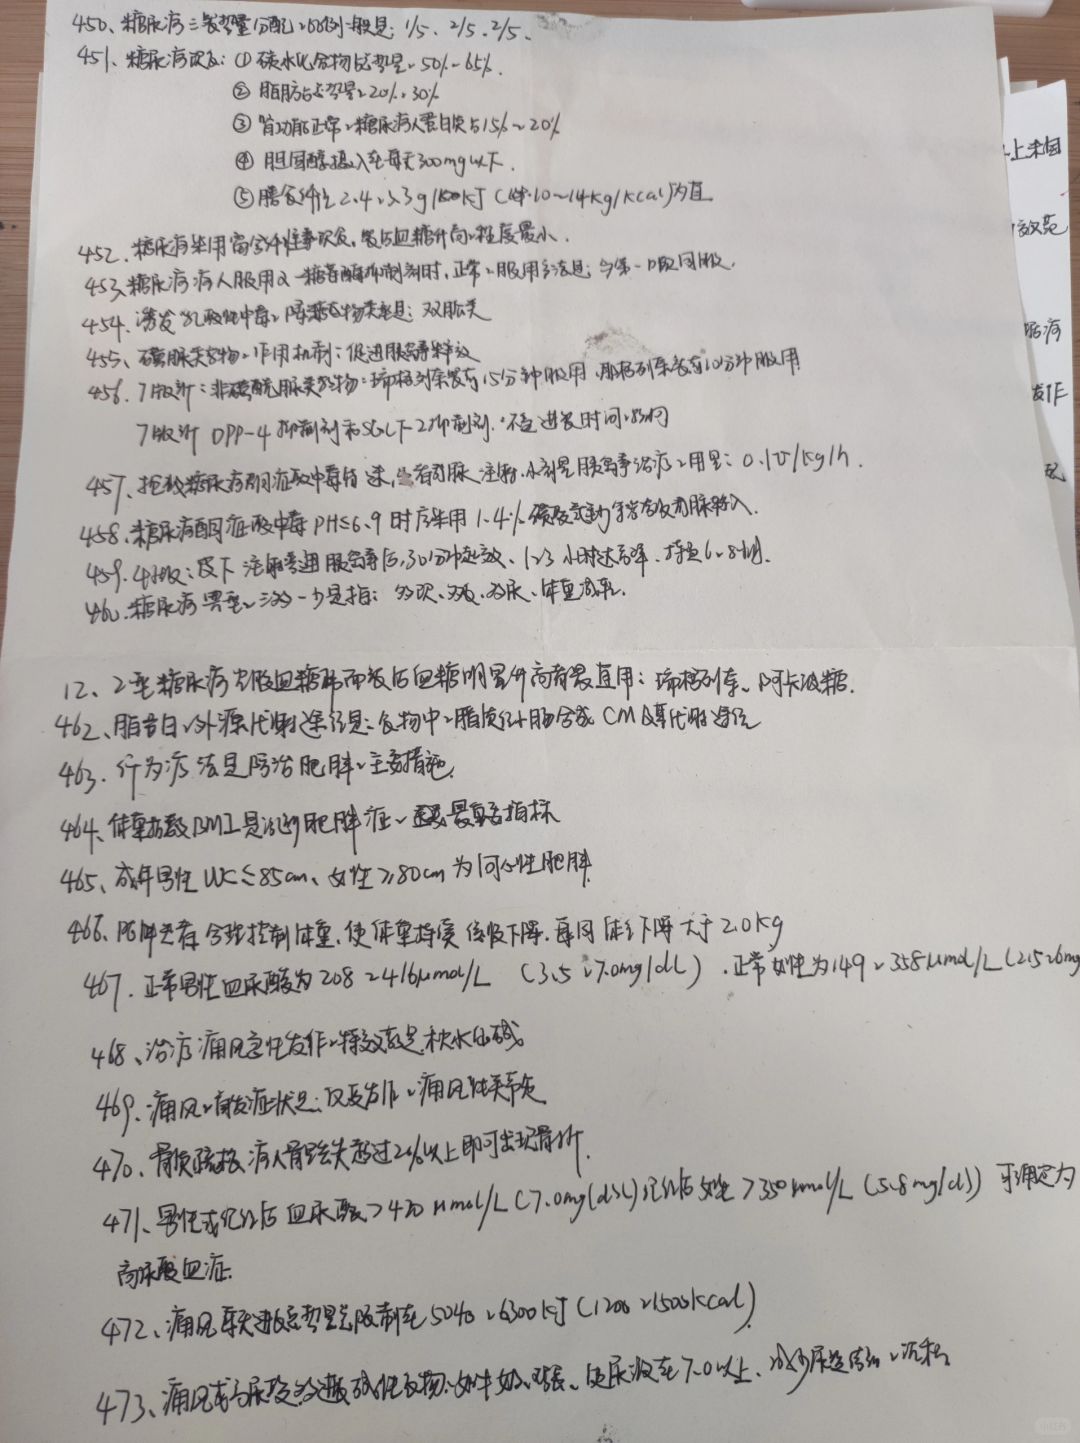 450、糖尿病三餐热量分配比例一般是：1/5、2/5、2/5、
451、糖尿病饮食：① 碳水化合物占总热量50%~65%.
② 脂肪占总热量20%~30%
③ 肾功能正常、糖尿病人蛋白质占15%~20%
④ 胆固醇摄入在每天300mg以下.
⑤ 膳食纤维 10~14kg/kcal)为宜
452. 糖尿病采用高纤维素饮食,餐后血糖升高程度最小.
453、糖尿病病人服用α-糖苷酶抑制剂时,正常服用方法是:与第一口饭同服.
454. 诱发乳酸性中毒、降糖药物类型是：双胍类
455、磺脲类药物、作用机制：促进胰岛素释放
456. 7版新：非磺酰脲类药物：瑞格列奈餐前15分钟服用、那格列奈餐前10分钟服用
7版新 DPP-4抑制剂和SGLT-2抑制剂. 不受进食时间影响
457、抢救糖尿病酮症酸中毒 静脉注射、小剂量胰岛素治疗、用量：0.1U/kg/h.
458、糖尿病酮症酸中毒PH≤6.9时应采用1.4%碳酸氢钠等渗 静脉输入.
459. 皮下注射普通胰岛素后,30分钟起效、1~3小时达高峰、持续6~8小时.
460.糖尿病典型、三多一少是指：多饮、多食、多尿、体重减轻.
12、2型糖尿病空腹血糖 而餐后血糖明显升高者最宜用：瑞格列奈、阿卡波糖.
462、脂蛋白、外源代谢途径是：食物中、脂质经小肠合成CM及其代谢途径
463. 行为疗法是防治肥胖、主要措施.
464、体重指数BMI是诊断肥胖症、 最重要指标
465、成年男性WC≤85cm、女性≥80cm为向心性肥胖.
466、 合理控制体重,使体重持续缓慢下降.每周体重下降大于2.0kg
467. 正常男性血尿酸为208~416μmol/L (3.5~7.0mg/dl) .正常女性为149~358μmol/L(2.5~6mg
468、治疗痛风急性发作、特效药是秋水仙碱
469. 痛风、首发症状是：反复发作、痛风性关节炎
470、骨质疏松病人骨丢失超过20%以上即可出现骨折.
471、男性或绝经后血尿酸>420 μmol/L(7.0mg/dl)绝经后女性>350 μmol/L (5.8mg/dl) 可确定为
高尿酸血症.
472、痛风 总热量应限制在5040~6300kJ(1200~1500kcal)
473、痛风或高尿酸 碱性食物：如牛奶、鸡蛋、使尿液在7.0以上、减少尿酸 、沉积